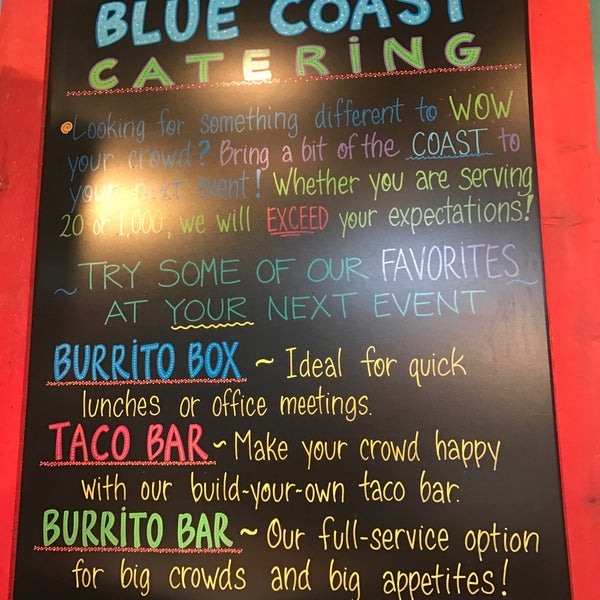 BLUE COAST
CATERING
Looking for something different to WOW
your crowd? Bring a bit of the COAST to
your next event! Whether you are serving
20 or 1,000, we will EXCEED your expectations!
~TRY SOME OF OUR FAVORITES~
AT YOUR NEXT EVENT
BURRITO BOX ~ Ideal for quick
lunches or office meetings.
TACO BAR ~ Make your crowd happy
with our build-your-own taco bar.
BURRITO BAR ~ Our full-service option
for big crowds and big appetites!